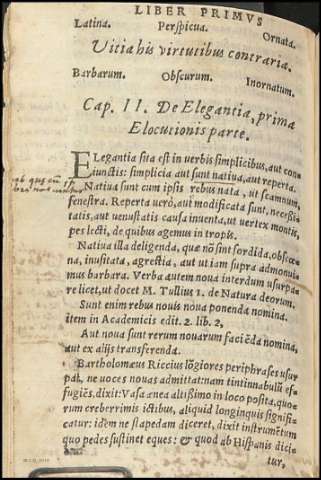 LIBER PRIMVS
Latina. Perspicua. Ornata.
Vitia his virtutibus contraria.
Barbarum. Obscurum. Inornatum.
Cap. II. De Elegantia, prima
Elocutionis parte.
ELegantia sita est in verbis simplicibus, aut con
iunctis: simplicia aut sunt natiua, aut reperta.
Natiua sunt cum ipsis rebus nata, ut scamnum,
fenestra. Reperta uerò, aut modificata sunt, necessi
tatis, aut uenustatis causa inuenta, ut vertex montis,
pes lecti, de quibus agemus in tropis.
Natiua illa deligenda, que nõ sint sordida, obscœ
na, inusitata, agrestia, aut ut iam supra admonui
mus barbara. Verba autem noua interdum usurpa
re licet, ut docet M. Tullius 1. de Natura deorum.
Sunt enim rebus nouis noua ponenda nomina.
item in Academicis edit. 2. lib. 2,
Aut noua sunt rerum nouarum faciẽda nomina,
aut ex alijs transferenda.
Bartholomæus Riccius lõgiores periphrases usur
pat, ne uoces nouas admittat: nam tintinnabuli ef
fugiẽs, dixit: Vasa ænea altißimo in loco posita, quo
rum creberrimis ictibus, aliquid longinquis signifi
catur: idem ne stapedam diceret, dixit instrumẽtum
quo pedes sustinet eques: & quod ab Hispanis dici
tur,